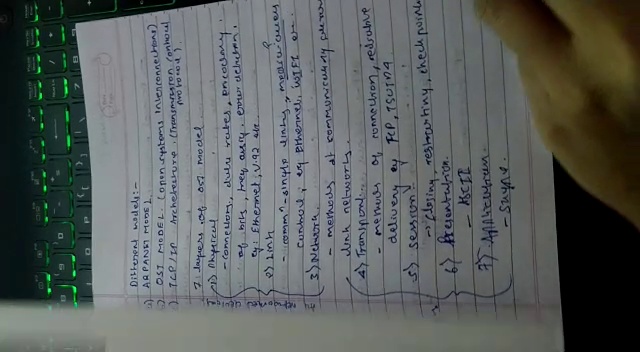 Different models:-
ARPANET MODEL.
OSI MODEL. (open systems Interconnections)
TCP/IP Architecture. (Transmission control
protocol)
7 layers of OSI model
1) Physical
- connections, data rates, encoding
of bits, freq, error detection.
eg: Ethernet, V.92 etc.
2) Link
- single links,
control, eg Ethernet, WIFI etc.
3) Network
- methods of communicating
link networks.
4) Transport
methods of connection, reliable
delivery eg TCP,
5) session
→ Closing, restarting, checkpoint
6) Presentation.
- ASCII
7) Application.